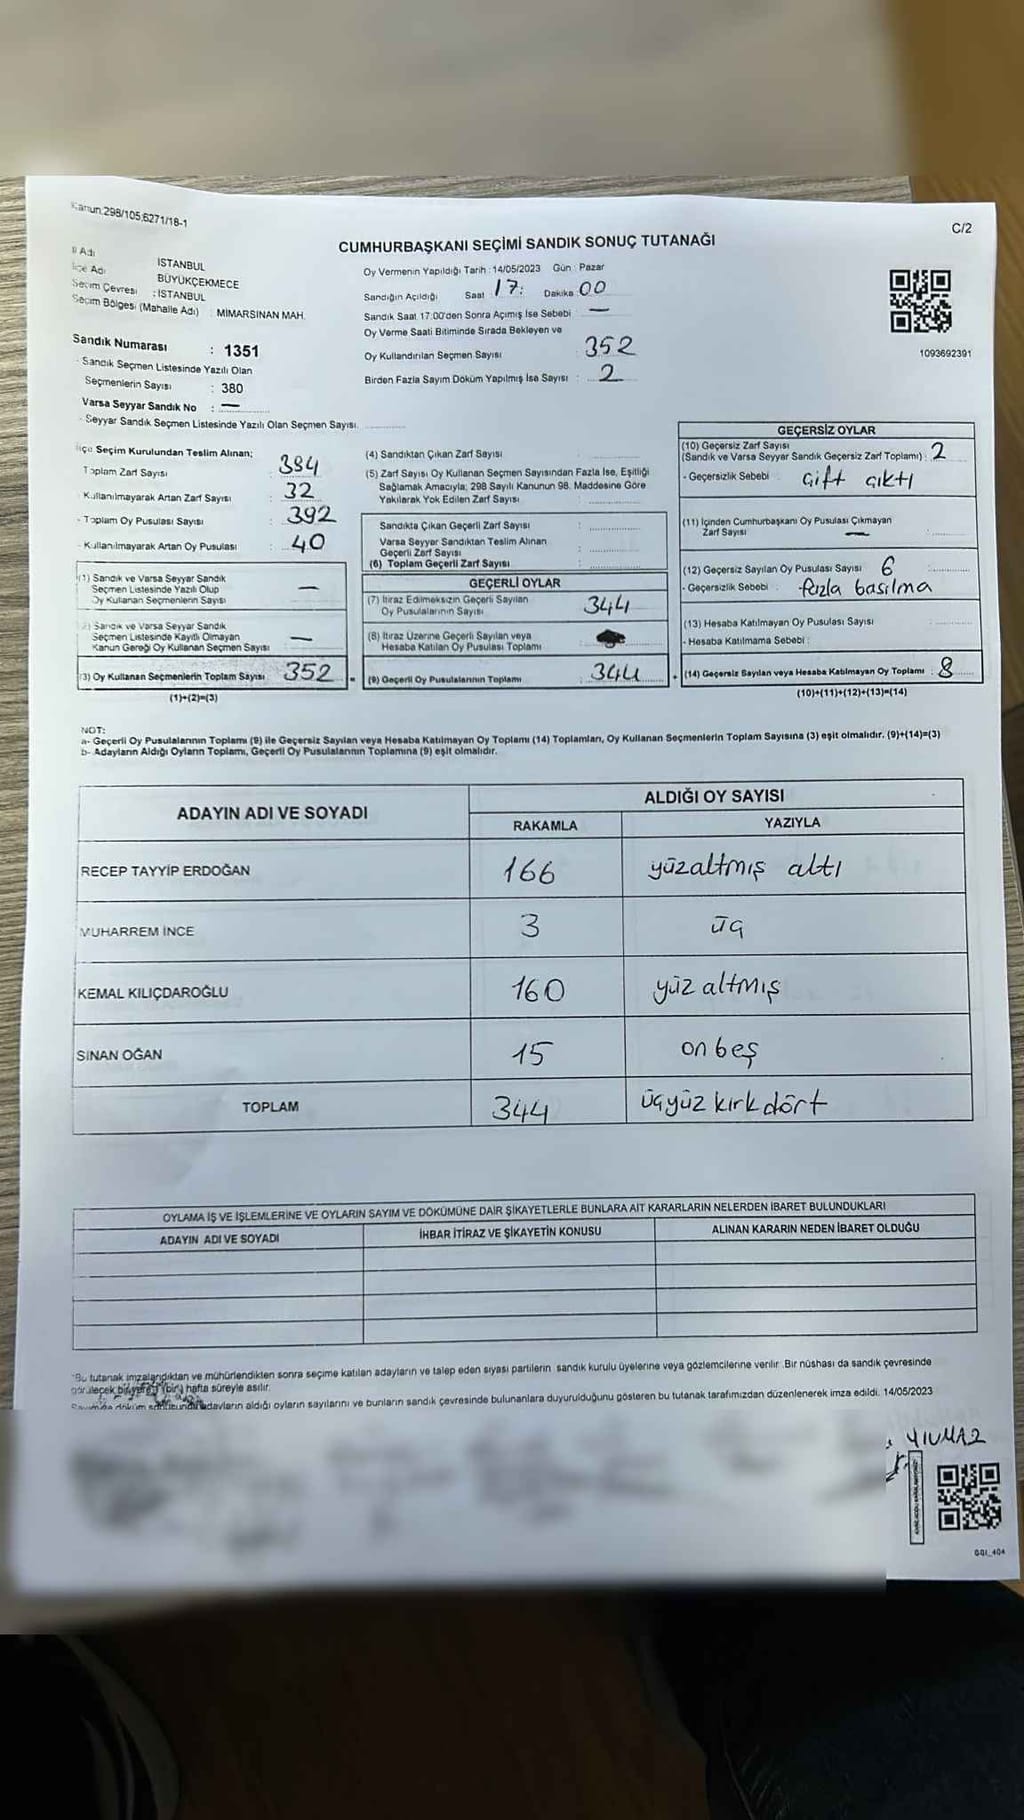 Kanun.298/105.6271/18-1
C/2
CUMHURBAŞKANI SEÇİMİ SANDIK SONUÇ TUTANAĞI
İl Adı İSTANBUL
İlçe Adı BÜYÜKÇEKMECE
Seçim Çevresi : İSTANBUL
Seçim Bölgesi (Mahalle Adı) : MİMARSİNAN MAH.
Sandık Numarası : 1351
- Sandık Seçmen Listesinde Yazılı Olan
Seçmenlerin Sayısı : 380
Varsa Seyyar Sandık No : —
- Seyyar Sandık Seçmen Listesinde Yazılı Olan Seçmen Sayısı.
Oy Vermenin Yapıldığı Tarih : 14/05/2023 Gün : Pazar
Sandığın Açıldığı Saat 17: Dakika 00
Sandık Saat 17:00'den Sonra Açımış İse Sebebi : —
Oy Verme Saati Bitiminde Sırada Bekleyen ve
Oy Kullandırılan Seçmen Sayısı : 352
Birden Fazla Sayım Döküm Yapılmış İse Sayısı : 2
1093692391
İlçe Seçim Kurulundan Teslim Alınan;
Toplam Zarf Sayısı : 384
- Kullanılmayarak Artan Zarf Sayısı : 32
- Toplam Oy Pusulası Sayısı : 392
- Kullanılmayarak Artan Oy Pusulası : 40
(1) Sandık ve Varsa Seyyar Sandık
Seçmen Listesinde Yazılı Olup
Oy Kullanan Seçmenlerin Sayısı : —
(2) Sandık ve Varsa Seyyar Sandık
Seçmen Listesinde Kayıtlı Olmayan
Kanun Gereği Oy Kullanan Seçmen Sayısı : —
(3) Oy Kullanan Seçmenlerin Toplam Sayısı : 352
(1)+(2)=(3)
(4) Sandıktan Çıkan Zarf Sayısı :
(5) Zarf Sayısı Oy Kullanan Seçmen Sayısından Fazla İse, Eşitliği
Sağlamak Amacıyla; 298 Sayılı Kanunun 98. Maddesine Göre
Yakılarak Yok Edilen Zarf Sayısı :
Sandıkta Çıkan Geçerli Zarf Sayısı :
Varsa Seyyar Sandıktan Teslim Alınan
Geçerli Zarf Sayısı :
(6) Toplam Geçerli Zarf Sayısı :
GEÇERLİ OYLAR
(7) İtiraz Edilmeksizin Geçerli Sayılan
Oy Pusulalarının Sayısı : 344
(8) İtiraz Üzerine Geçerli Sayılan veya
Hesaba Katılan Oy Pusulası Toplamı :
(9) Geçerli Oy Pusulalarının Toplamı : 344
GEÇERSİZ OYLAR
(10) Geçersiz Zarf Sayısı
(Sandık ve Varsa Seyyar Sandık Geçersiz Zarf Toplamı) : 2
- Geçersizlik Sebebi : çift çıktı
(11) İçinden Cumhurbaşkanı Oy Pusulası Çıkmayan
Zarf Sayısı : —
(12) Geçersiz Sayılan Oy Pusulası Sayısı : 6
- Geçersizlik Sebebi : fazla basılma
(13) Hesaba Katılmayan Oy Pusulası Sayısı :
- Hesaba Katılmama Sebebi :
(14) Geçersiz Sayılan veya Hesaba Katılmayan Oy Toplamı : 8
(10)+(11)+(12)+(13)=(14)
NOT:
a- Geçerli Oy Pusulalarının Toplamı (9) ile Geçersiz Sayılan veya Hesaba Katılmayan Oy Toplamı (14) Toplamları, Oy Kullanan Seçmenlerin Toplam Sayısına (3) eşit olmalıdır. (9)+(14)=(3)
b- Adayların Aldığı Oyların Toplamı, Geçerli Oy Pusulalarının Toplamına (9) eşit olmalıdır.
ADAYIN ADI VE SOYADI
ALDIĞI OY SAYISI
RAKAMLA YAZIYLA
RECEP TAYYİP ERDOĞAN 166 yüzaltmış altı
MUHARREM İNCE 3 üç
KEMAL KILIÇDAROĞLU 160 yüz altmış
SİNAN OĞAN 15 on beş
TOPLAM 344 üçyüz kırk dört
OYLAMA İŞ VE İŞLEMLERİNE VE OYLARIN SAYIM VE DÖKÜMÜNE DAİR ŞİKAYETLERLE BUNLARA AİT KARARLARIN NELERDEN İBARET BULUNDUKLARI
ADAYIN ADI VE SOYADI İHBAR İTİRAZ VE ŞİKAYETİN KONUSU ALINAN KARARIN NEDEN İBARET OLDUĞU
*Bu tutanak imzalandıktan ve mühürlendikten sonra seçime katılan adayların ve talep eden siyasi partilerin sandık kurulu üyelerine veya gözlemcilerine verilir. Bir nüshası da sandık çevresinde
görülecek bir yere 1 (bir) hafta süreyle asılır.
adayların aldığı oyların sayılarını ve bunların sandık çevresinde bulunanlara duyurulduğunu gösteren bu tutanak tarafımızdan düzenlenerek imza edildi. 14/05/2023
YILMAZ